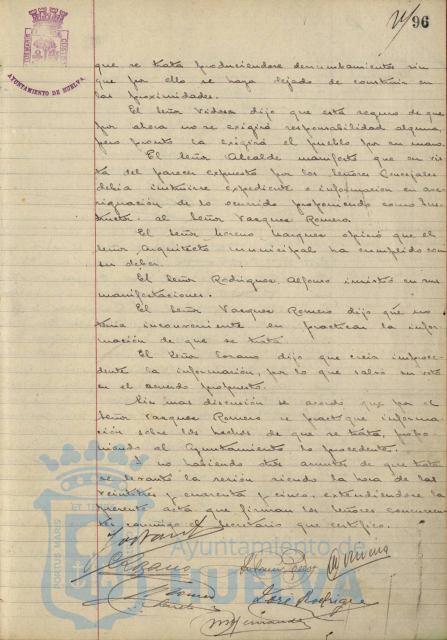 96
AYUNTAMIENTO DE HUELVA
que se trata produciendose derrumbamientos sin
que por ello se haya dejado de construir en
las proximidades.
El Señor Vidosa dijo que está seguro de que
por ahora no se exigirá responsabilidad alguna
pero pronto la exigirá el pueblo por su mano.
El Señor Alcalde manifestó que en vis-
ta del parecer expuesto por los Señores Concejales
debia instruirse expediente o informacion en ave-
riguación de lo ocurrido proponiendo como Ins-
tructor al Señor Vazquez Romero
El Señor Moreno Marquez opinó que el
Señor Arquitecto municipal ha cumplido con
su deber.
El Señor Rodriguez Alfonso insistió en sus
manifestaciones.
El Señor Vazquez Romero dijo que no
tenia inconveniente en practicar la infor-
mación de que se trata
El Señor Lozano dijo que creia improce-
dente la información, por lo que salvó su voto
en el acuerdo propuesto.
Sin mas discusión se acordó que por el
Señor Vazquez Romero se practique informa-
ción sobre los hechos de que se trata, propo-
niendo al Ayuntamiento lo procedente.
Y no habiendo otros asuntos de que tratar
se levantó la sesión siendo la hora de las
veintitres y cuarenta y cinco, extendiendose la
presente acta que firman los Señores concurren-
tes conmigo el Secretario que certifico.
Lozano
José Rodriguez
Ayuntamiento de
HUELVA
PORTUS MARIS